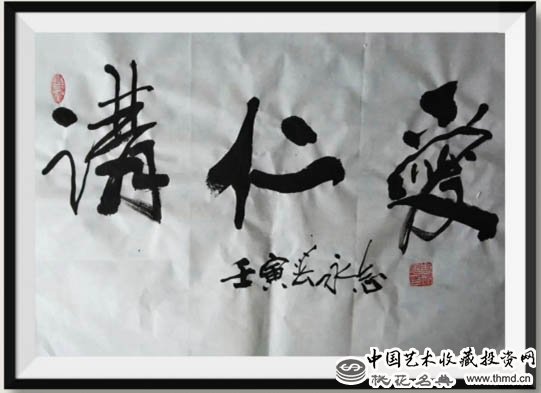 讲仁爱
壬寅 永志
中国艺术收藏投资网
桃花名典 www.thmd.cn